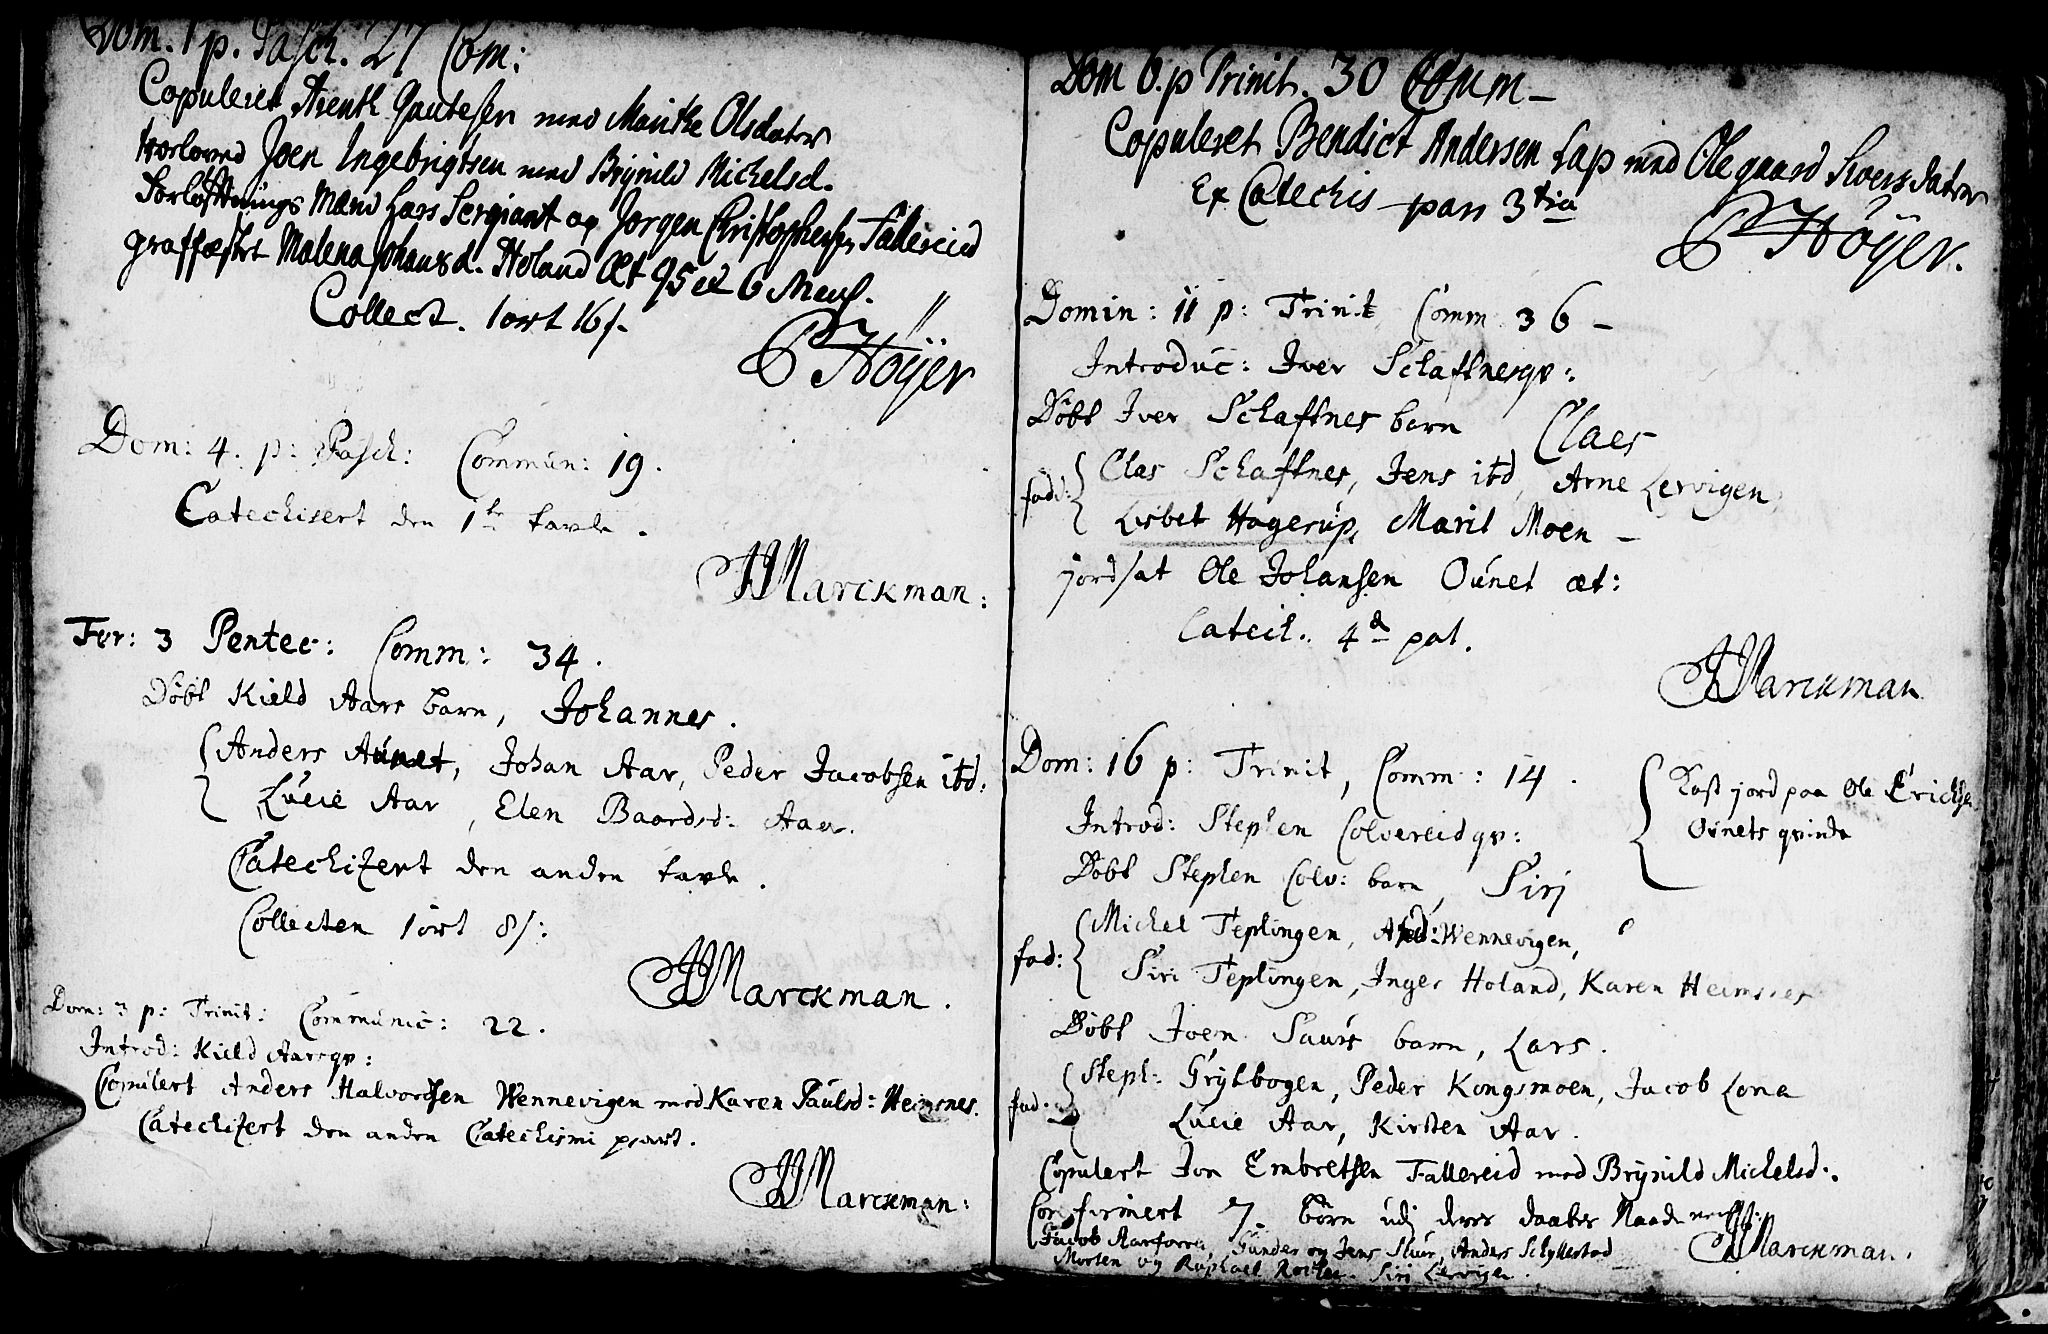 Dom. 1 p. Pasch. 27 Com:
Copuleret Arent Gautesen med Marithe Olsdater
trorloved Joen Ingebrigtsen med Brynild Michelsd.
Forlofftnings Mænd Lars Sergiant og Jørgen Christophersen Fallereid
graffæstet Malena Johansd. Holand Æt 95 et 6 Mens.
Collect. 1 ort 16 s.
P Höyer
Dom: 4. p: Pasch: Commun: 19.
Catechisert den 1ste tavle.
HMarckman:
Fer: 3 Pentec: Comm: 34.
Döbt Kield Aars barn, Johannes.
Anders Aunet, Johan Aar, Peder Jacobsen itd:
Lucie Aar, Elen Baardsd: Aar.
Catechizert den anden tavle.
Collecten 1 ort 8 s:
HMarckman.
Dom: 3 p: Trinit: Communic: 22.
Introd: Kield Aars qv:
Copulert Anders Halvordsen Wennevigen med Karen Paulsd: Heimsnes.
Catechizert den anden Catechismi part.
HMarckman:
Dom 6. p Trinit. 30 Comm -
Copuleret Bendict Andersen Lap med Olegaard Siversdater
Ex Catechis pars 3tia
P Höyer.
Domin: 11 p: Trinit Comm 36 -
Introduc: Iver Schaftnes qv:
Döbt Iver Schaftnes barn Claes
fad: Clas Schaftnes, Jens itd, Arne Lervigen,
Lisbet Hagerup, Marit Moen -
jordsat Ole Johansen Ounet æt:
Catech: 4da pat.
HMarckman
Dom: 16 p: Trinit, Comm: 14.
Kast jord paa Ole Erichsen
Ounets qvinde
Introd: Stephen Colvereid qv:
Döbt Stephen Colv: barn, Siri
fad: Michel Teplingen, And: Wennevigen,
Siri Teplingen, Inger Holand, Karen Heimsnes
Döbt Joen Saurs barn, Lars.
fad: Steph: Grytbogen, Peder Kongsmoen, Jacob Lona
Lucie Aar, Kirsten Aar.
Copulert Jon Embretsen Fallereid med Brynild Michelsd:
Confirmert 7. börn udj deres daabes Naade
Jacob Aarforr, Gunder og Jens Saur, Anders Schyllestad
Morten og Raphael Rothe. Siri Lervigen.
HMarckman.